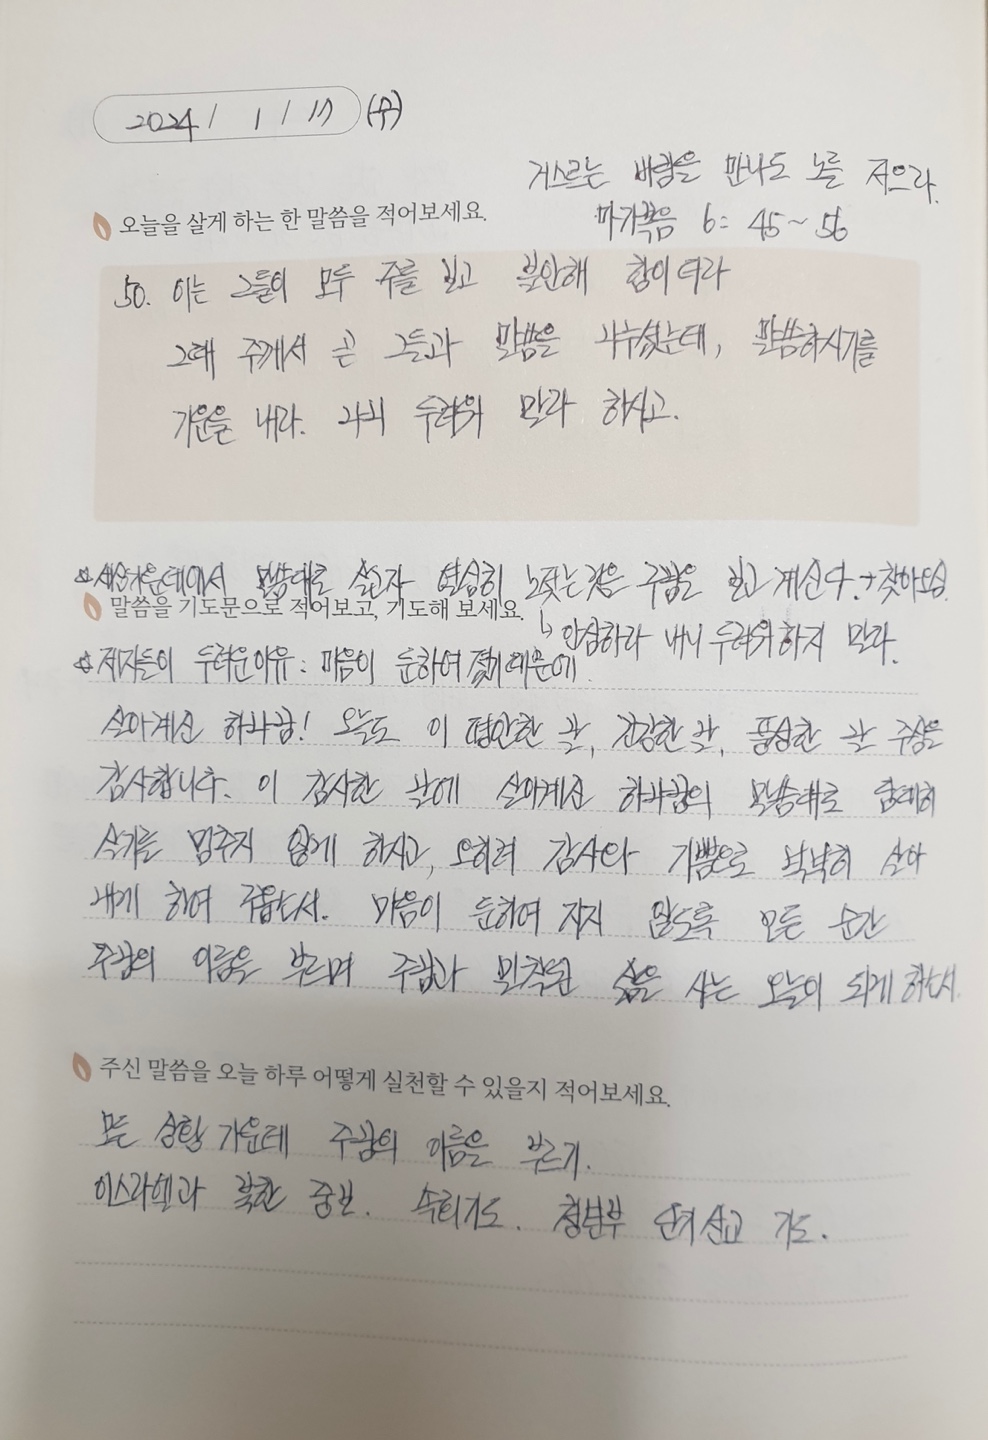 2024 / 1 / 17 (수)
거스르는 바람을 만나도 노를 저으라.
오늘을 살게 하는 한 말씀을 적어보세요.
마가복음 6: 45~56
50. 이는 그들이 모두 주를 보고 불안해 함이더라
그때 주께서 곧 그들과 말씀을 나누셨는데, 말씀하시기를
기운을 내라. 나니 두려워 말라 하시고.
☆ 세상가운데에서 말씀대로 살고자 열심히 노젓는것은 주님은 보고 계신다. → 찾아오심
말씀을 기도문으로 적어보고, 기도해 보세요.
↳ 안심하라 내니 두려워하지 말라.
☆ 제자들이 두려운이유 : 마음이 둔하여 졌기때문에.
살아계신 하나님! 오늘도 이 평안한 날, 건강한 날, 풍성한 날 주심을
감사합니다. 이 감사한 날에 살아계신 하나님의 말씀대로 담대히
살기를 멈추지 않게 하시고, 오히려 감사와 기쁨으로 넉넉히 살아
내게 하여 주옵소서. 마음이 둔하여 지지 않도록 모든 순간
주님의 이름을 부르며 주님과 밀착된 삶을 사는 오늘이 되게 하소서.
주신 말씀을 오늘 하루 어떻게 실천할 수 있을지 적어보세요.
모든 상황 가운데 주님의 이름을 부르기.
이스라엘과 북한 중보. 수리기도. 청년부 단기선교 기도.